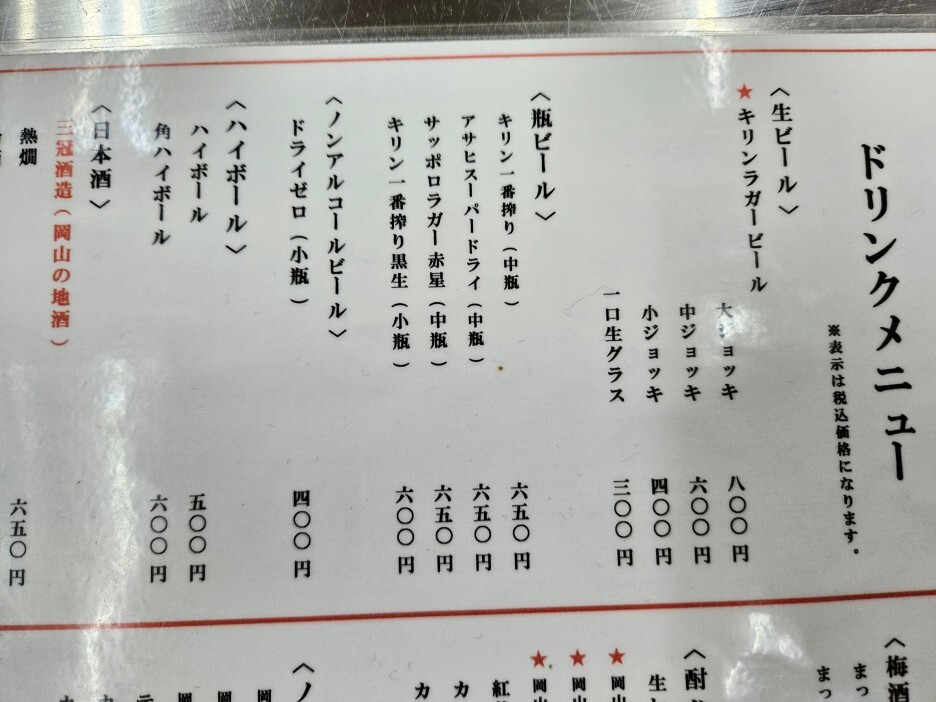 ドリンクメニュー
※表示は税込価格になります。
〈生ビール〉
★キリンラガービール
大ジョッキ 八〇〇円
中ジョッキ 六〇〇円
小ジョッキ 四〇〇円
一口生グラス 三〇〇円
〈瓶ビール〉
キリン一番搾り(中瓶) 六五〇円
アサヒスーパードライ(中瓶) 六五〇円
サッポロラガー赤星(中瓶) 六五〇円
キリン一番搾り黒生(小瓶) 六〇〇円
〈ノンアルコールビール〉
ドライゼロ(小瓶) 四〇〇円
〈ハイボール〉
ハイボール 五〇〇円
角ハイボール 六〇〇円
〈日本酒〉
三冠酒造(岡山の地酒)
熱燗 六五〇円
〈梅酒
まっ
まっ
〈酎
生
★岡山
★岡山
★岡山
紅
カ
カ
〈ノ
岡
岡
岡